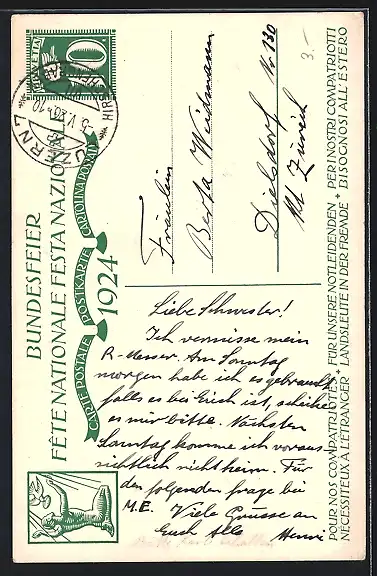 HELVETIA
10
LUZERN 1
HIRSCHEN
BUNDESFEIER
FÊTE NATIONALE FESTA NAZIONALE
CARTE POSTALE POSTKARTE CARTOLINA POSTALE
1924
Fräulein
Berta Weidmann
Dielsdorf Nr 130
Kt. Zürich
3.-
Liebe Schwester!
Ich vermisse mein
R-Messer. Am Sonntag
morgen habe ich es gebraucht
falls es bei Euch ist, schicke
es mir bitte. Nächsten
Sonntag komme ich voraus-
sichtlich nicht heim. Für
den folgenden frage bei
M.E. Viele Grüsse an
Euch Alle Henri
POUR NOS COMPATRIOTES + FÜR UNSERE NOTLEIDENDEN + PER I NOSTRI COMPATRIOTTI
NÉCESSITEUX À L'ÉTRANGER + LANDSLEUTE IN DER FREMDE + BISOGNOSI ALL'ESTERO